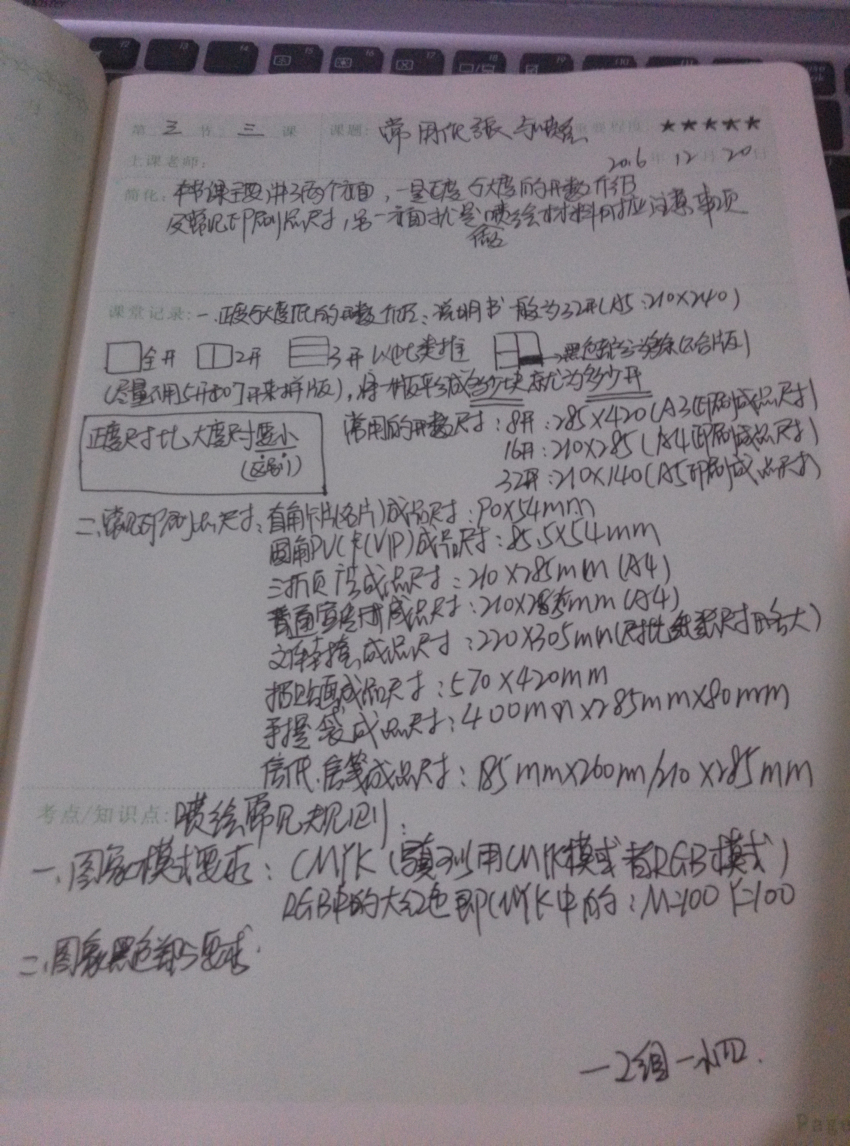 第 三 节 三 课 课题: 常用纸张与喷绘 重要程度: ★★★★★
上课老师: 2016年12月20日
简化: 本节课主要讲了两个方面,一是正度与大度的开数介绍
及常见印刷品尺寸,另一方面就是喷绘材料时对应注意事项
课堂记录: 一.正度与大度纸的开数介绍:说明书一般为32开(A5:210×240)
全开 2开 3开 以此类推 黑色部分
(尽量不用5开和7开来拼版),将一张纸平分成多少块就为多少开
正度尺寸比大度尺寸要小
(区别)
常用的开数尺寸:8开:285×420(A3印刷成品尺寸)
16开:210×285(A4印刷成品尺寸)
32开:210×140(A5印刷成品尺寸)
二.常见印刷品尺寸:直角卡片(名片)成品尺寸:90×54mm
圆角PVC卡(VIP)成品尺寸:85.5×54mm
三折页广告成品尺寸:210×285mm(A4)
普通宣传册成品尺寸:210×285mm(A4)
文件封套成品尺寸:220×305mm(尺寸比纸张尺寸略大)
招贴画成品尺寸:570×420mm
手提袋成品尺寸:400mm×285mm×80mm
信纸.信笺成品尺寸:185mm×260mm/210×285mm
考点/知识点: 喷绘常见规则:
一.图象模式要求:CMYK(写真可以用CMYK模式或者RGB模式)
RGB中的大红色即CMYK中的:M=100 Y=100
二.图象黑色部分要求.
Page